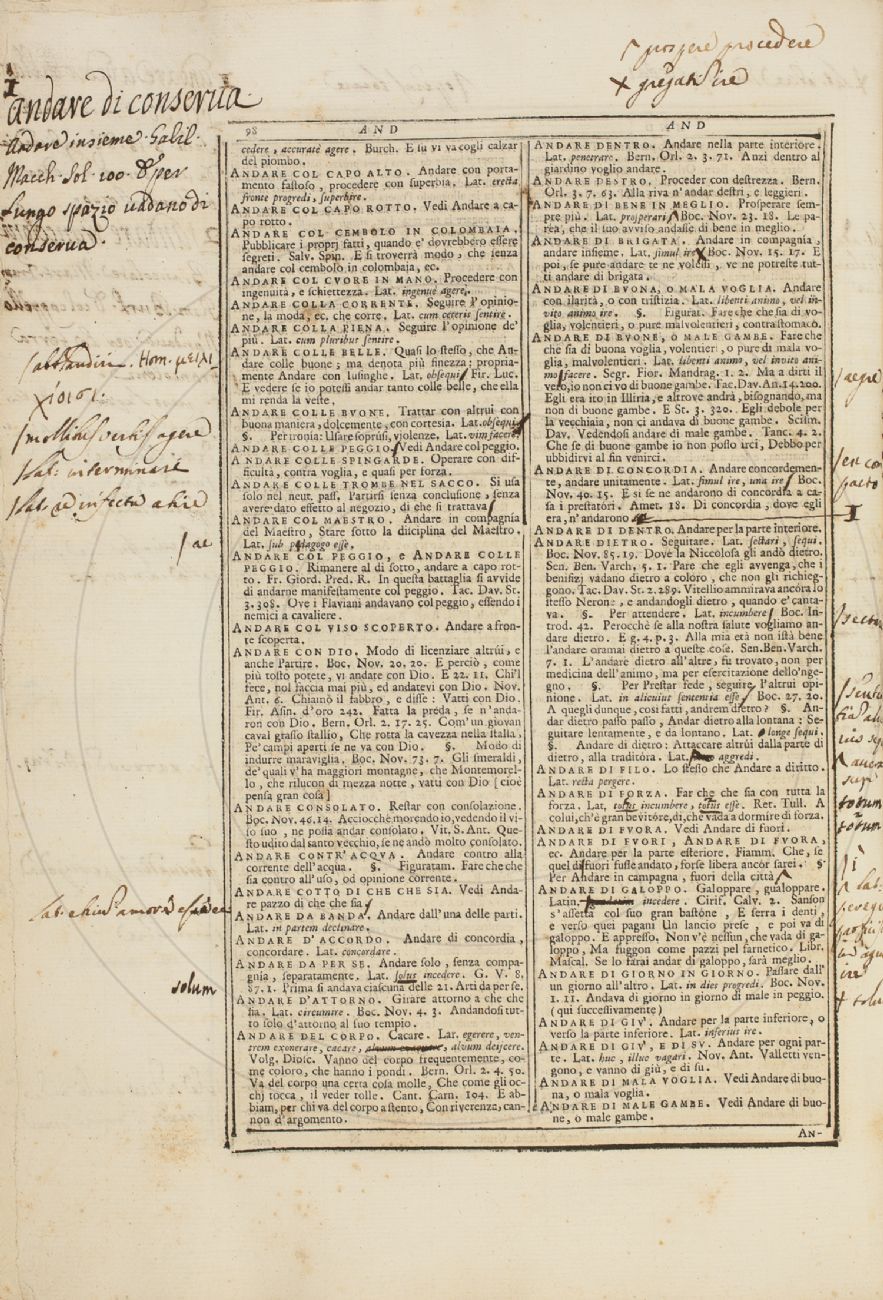 prospere procedere
gregatim ire
andare di conserva
Andare insieme. Galil.
Macch. Sol. 100. & per
lungo spazio vadano di
conserva.
mollibus verbis agere
re infecta abire
ae
solum
aegre
98 AND
AND
cedere, accuratè agere. Burch. E tu vi va cogli calzar
del piombo.
ANDARE COL CAPO ALTO. Andare con porta-
mento fastoso, procedere con superbia. Lat. erecta
fronte progredi, superbire.
ANDARE COL CAPO ROTTO. Vedi Andare a ca-
po rotto.
ANDARE COL CEMBOLO IN COLOMBAIA.
Pubblicare i proprj fatti, quando e' dovrebbero essere
segreti. Salv. Spin. E si troverrà modo, che senza
andare col cembolo in colombaja, ec.
ANDARE COL CVORE IN MANO. Procedere con
ingenuità, e schiettezza. Lat. ingenuè agere.
ANDARE COLLA CORRENTE. Seguire l'opinio-
ne, la moda, ec. che corre. Lat. cum ceteris sentire.
ANDARE COLLA PIENA. Seguire l'opinione de'
più. Lat. cum pluribus sentire.
ANDARE COLLE BELLE. Quasi lo stesso, che An-
dare colle buone; ma denota più finezza: propria-
mente Andare con lusinghe. Lat. obsequi. Fir. Luc.
E vedere se io potessi andar tanto colle belle, che ella
mi renda la veste.
ANDARE COLLE BVONE. Trattar con altrui con
buona maniera, dolcemente, con cortesia. Lat. obsequi.
§. Per ironia: Usare soprusi, violenze. Lat. vim facere.
ANDARE COLLE PEGGIO. Vedi Andare col peggio.
ANDARE COLLE SPINGARDE. Operare con dif-
ficultà, contra voglia, e quasi per forza.
ANDARE COLLE TROMBE NEL SACCO. Si usa
solo nel neut. pass. Partirsi senza conclusione, senza
avere dato essetto al negozio, di che si trattava
ANDARE COL MAESTRO. Andare in compagnia
del Maestro, Stare sotto la disciplina del Maestro.
Lat. sub pædagogo esse.
ANDARE COL PEGGIO, e ANDARE COLLE
PEGGIO. Rimanere al di sotto, andare a capo rot-
to. Fr. Giord. Pred. R. In questa battaglia si avvide
di andarne manifestamente col peggio. Tac. Dav. St.
3. 308. Ove i Flaviani andavano col peggio, essendo i
nemici a cavaliere.
ANDARE COL VISO SCOPERTO. Andare a fron-
te scoperta.
ANDARE CON DIO. Modo di licenziare altrui, e
anche Partire. Boc. Nov. 20. 20. E perciò, come
più tosto potete, vi andare con Dio. E 22. 11. Chi'l
fece, nol faccia mai più, ed andatevi con Dio. Nov.
Ant. 6. Chiamò il fabbro, e disse: Vatti con Dio.
Fir. Asin. d'oro 242. Fatta la preda, se n'anda-
ron con Dio. Bern. Orl. 2. 17. 25. Com'un giovan
caval grasso stallio, Che rotta la cavezza nella stalla,
Pe' campi aperti se ne va con Dio. §. Modo di
indurre maraviglia. Boc. Nov. 73. 7. Gli smeraldi,
de' quali v'ha maggiori montagne, che Montemorel-
lo, che rilucon di mezza notte, vatti con Dio [cioè
pensa gran cosa]
ANDARE CONSOLATO. Restar con consolazione.
Boc. Nov. 46. 14. Acciocchè morendo io, vedendo il vi-
so suo, ne possa andar consolato. Vit. S. Ant. Que-
sto udito dal santo vecchio, se ne andò molto consolato.
ANDARE CONTR'ACQVA. Andare contro alla
corrente dell'acqua. §. Figuratam. Fare che che
sia contro all'uso, od opinione corrente.
ANDARE COTTO DI CHE CHE SIA. Vedi Anda-
re pazzo di che che sia
ANDARE DA BANDA. Andare dall'una delle parti.
Lat. in partem declinare.
ANDARE D'ACCORDO. Andare di concordia,
concordare. Lat. concordare.
ANDARE DA PER SE. Andare solo, senza compa-
gnia, separatamente. Lat. solus incedere. G. V. 8.
87. 1. Prima si andava ciascuna delle 21. Arti da per se.
ANDARE D'ATTORNO. Girare attorno a che che
sia. Lat. circumire. Boc. Nov. 4. 3. Andandosi tut-
to solo d'attorno al suo tempio.
ANDARE DEL CORPO. Cacare. Lat. egerere, ven-
trem exonerare, cacare, alvum deijcere.
Volg. Diosc. Vanno del corpo frequentemente, co-
me coloro, che hanno i pondi. Bern. Orl. 2. 4. 50.
Va del corpo una certa cosa molle, Che come gli oc-
chj tocca, il veder tolle. Cant. Carn. 104. E ab-
biam, per chi va del corpo a stento, Con riverenza, can-
non d'argomento.
ANDARE DENTRO. Andare nella parte interiore.
Lat. penetrare. Bern. Orl. 2. 3. 71. Anzi dentro al
giardino voglio andare.
ANDARE DESTRO. Proceder con destrezza. Bern.
Orl. 3. 7. 63. Alla riva n'andar destri, e leggieri.
ANDARE DI BENE IN MEGLIO. Prosperare sem-
pre più. Lat. prosperari. Boc. Nov. 23. 18. Le pa-
rea, che il suo avviso andasse di bene in meglio.
ANDARE DI BRIGATA. Andare in compagnia,
andare insieme. Lat. simul ire. Boc. Nov. 15. 17. E
poi, se pure andare te ne volessi, ve ne potreste tut-
ti andare di brigata.
ANDARE DI BVONA, O MALA VOGLIA. Andare
con ilarità, o con tristizia. Lat. libenti animo, vel in-
vito animo ire. §. Figurat. Fare che che sia di vo-
glia, volentieri, o pure malvolentieri, contrastomaco.
ANDARE DI BVONE, O MALE GAMBE. Fare che
che sia di buona voglia, volentieri, o pure di mala vo-
glia, malvolentieri. Lat. libenti animo, vel invito ani-
mo facere. Segr. Fior. Mandrag. 1. 2. Ma a dirti il
vero, io non ci vo di buone gambe. Tac. Dav. An. 14. 200.
Egli era ito in Illiria, e altrove andrà, bisognando, ma
non di buone gambe. E St. 3. 320. Egli debole per
la vecchiaia, non ci andava di buone gambe. Scism.
Dav. Vedendosi andare di male gambe. Tanc. 4. 2.
Che se di buone gambe io non posso irci, Debbo per
ubbidirvi al fin venirci.
ANDARE DI CONCORDIA. Andare concordemen-
te, andare unitamente. Lat. simul ire, una ire. Boc.
Nov. 40. 15. E sì se ne andarono di concordia a ca-
sa i prestatori. Amet. 18. Di concordia, dove egli
era, n'andarono
ANDARE DI DENTRO. Andare per la parte interiore.
ANDARE DIETRO. Seguitare. Lat. sectari, sequi.
Boc. Nov. 85. 19. Dove la Niccolosa gli andò dietro.
Sen. Ben. Varch. 5. 1. Pare che egli avvenga, che i
benifizj vadano dietro a coloro, che non gli richieg-
gono. Tac. Dav. St. 2. 289. Vitellio ammirava ancora lo
stesso Nerone, e andandogli dietro, quando e' canta-
va. §. Per attendere. Lat. incumbere. Boc. In-
trod. 42. Perocchè se alla nostra salute vogliamo an-
dare dietro. E g. 4. p. 3. Alla mia età non istà bene
l'andare oramai dietro a queste cose. Sen. Ben. Varch.
7. 1. L'andare dietro all'altre, fu trovato, non per
medicina dell'animo, ma per esercitazione dello'nge-
gno. §. Per Prestar fede, seguire l'altrui opi-
nione. Lat. in alicuius sententia esse. Boc. 27. 20.
A quegli dunque, così fatti, andrem dietro? §. An-
dar dietro passo passo, Andar dietro alla lontana: Se-
guitare lentamente, e da lontano. Lat. longe sequi.
§. Andare di dietro: Attaccare altrui dalla parte di
dietro, alla traditóra. Lat. aggredi.
ANDARE DI FILO. Lo stesso che Andare a diritto.
Lat. recta pergere.
ANDARE DI FORZA. Far che che sia con tutta la
forza. Lat. totus incumbere, totus esse. Ret. Tull. A
colui, ch'è gran bevitóre, di, che vada a dormire di forza.
ANDARE DI FVORA. Vedi Andare di fuori.
ANDARE DI FVORI, ANDARE DI FVORA,
ec. Andare per la parte esteriore. Fiamm. Che, se
quel di fuori fusse andato, forse libera ancor sarei. §.
Per Andare in campagna, fuori della città
ANDARE DI GALOPPO. Galoppare, gualoppare.
Latin. incedere. Cirif. Calv. 2. Sanson
s'assetta col suo gran bastone, E serra i denti,
e verso quei pagani Un lancio prese, e poi va di
galoppo. E appresso. Non v'è nessun, che vada di ga-
loppo, Ma fuggon come pazzi pel farnetico. Libr.
Mascal. Se lo farai andar di galoppo, sarà meglio.
ANDARE DI GIORNO IN GIORNO. Passare dall'
un giorno all'altro. Lat. in dies progredi. Boc. Nov.
1. 11. Andava di giorno in giorno di male in peggio.
(qui successivamente)
ANDARE DI GIV'. Andare per la parte inferiore, o
verso la parte inferiore. Lat. inferius ire.
ANDARE DI GIV', E DI SV. Andare per ogni par-
te. Lat. huc, illuc vagari. Nov. Ant. Valletti ven-
gono, e vanno di giù, e di su.
ANDARE DI MALA VOGLIA. Vedi Andare di buo-
na, o mala voglia.
ANDARE DI MALE GAMBE. Vedi Andare di buo-
ne, o male gambe.
AN-